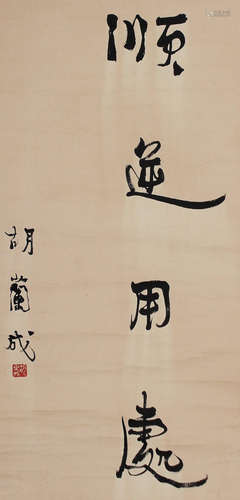 順逆用處
胡蘭成